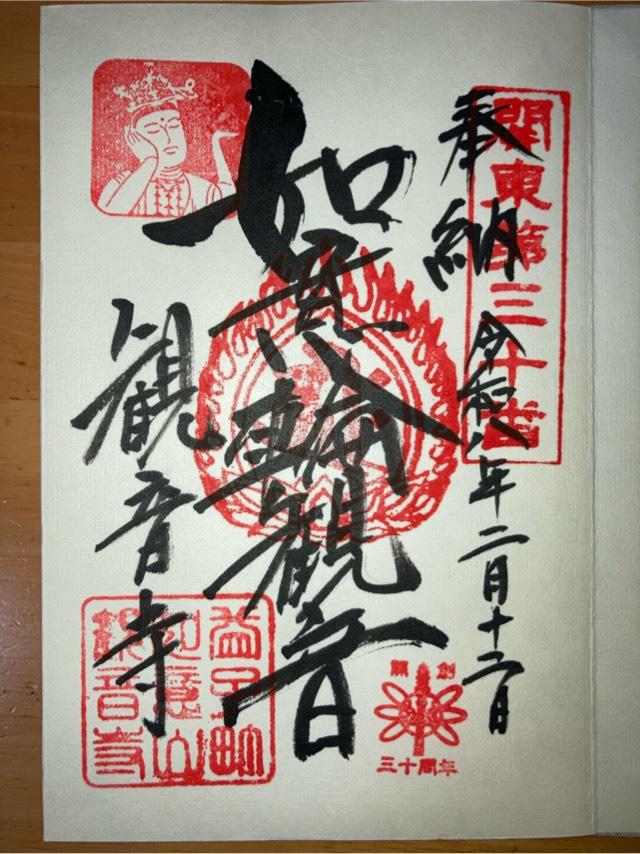 奉納 令和八年二月十二日
關東第三十番
如意輪觀音
観音寺
益子町
如意山
観音寺
開創
三十周年